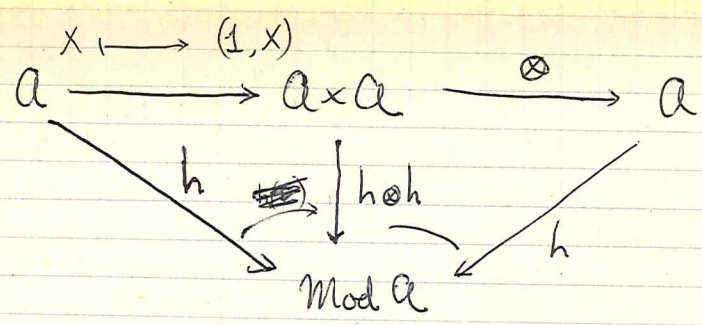 X ⟼ (1, X)
⊗
a → a × a → a
h
h ⊗ h
h
Mod a